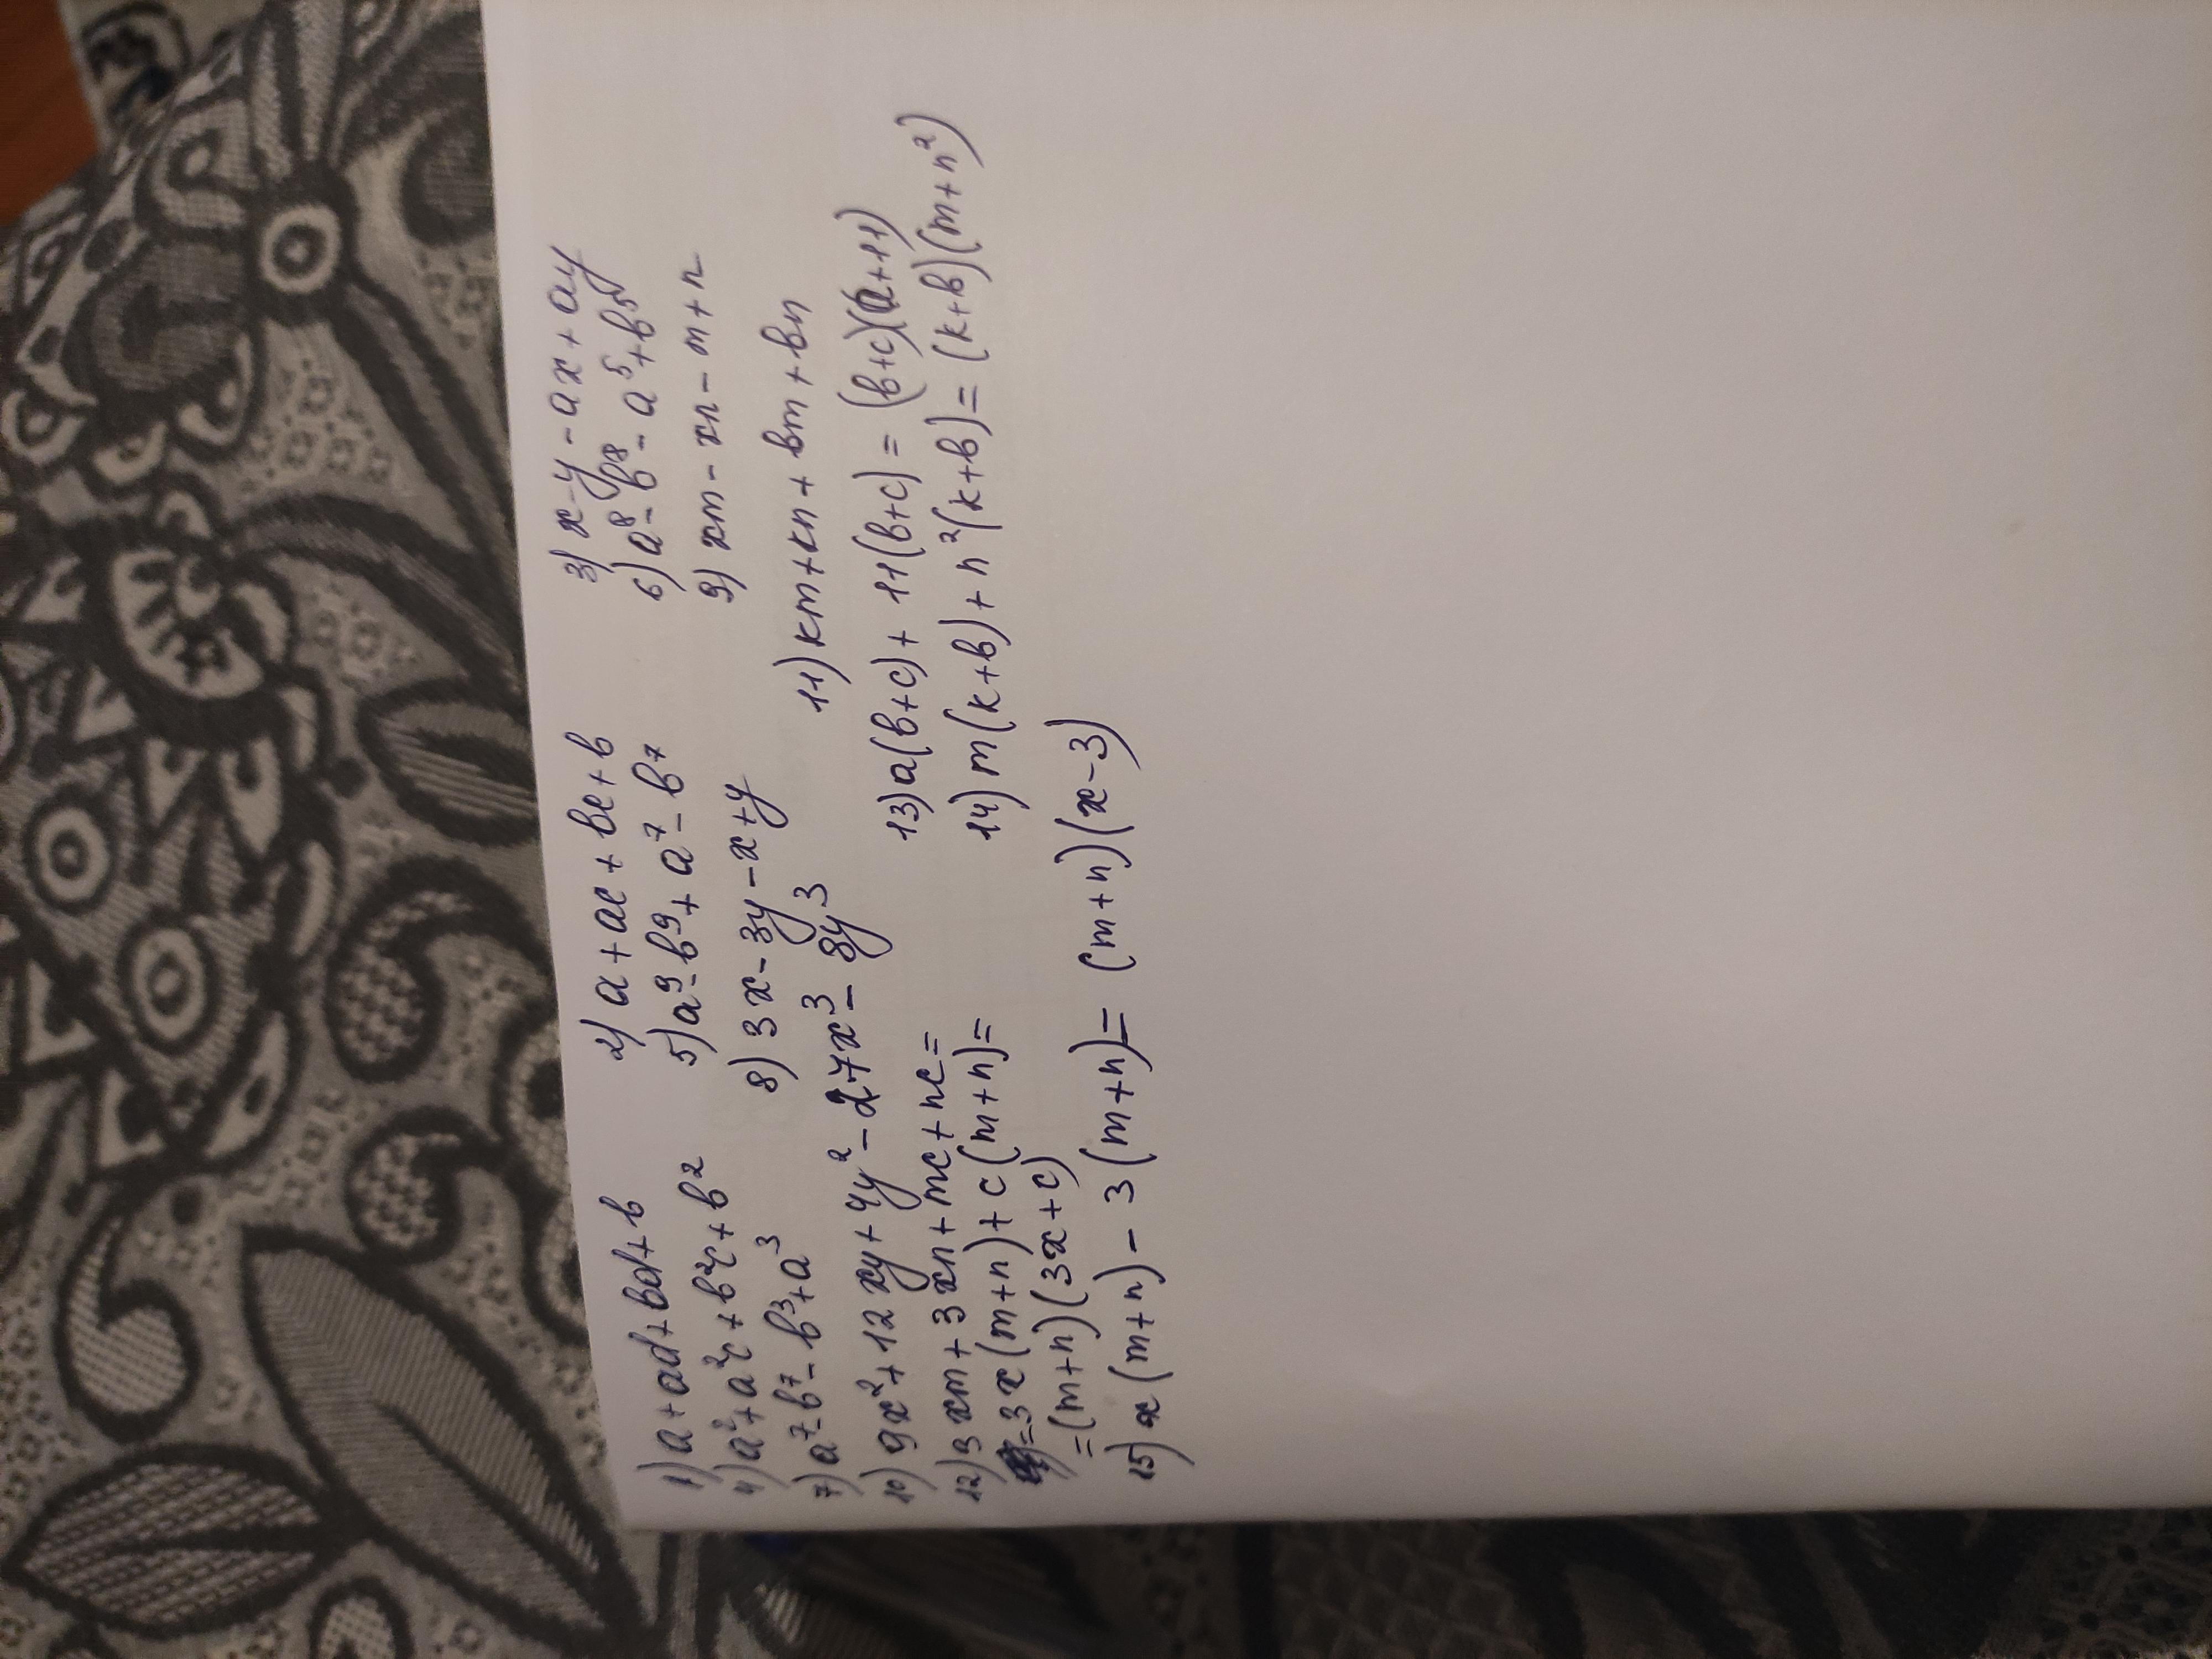 1) a + ad + bd + b 2) a + ac + bc + b 3) x - y - ax + ay
4) a² + a²c + b²c + b² 5) a⁹ - b⁹ + a⁷ - b⁷ 6) a⁸ - b⁸ - a⁵ + b⁵
7) a⁷ - b⁷ - b³ + a³ 8) 3x - 3y - x + y 9) xm - xn - m + n
10) 9x² + 12xy + 4y² - 27x³ - 8y³ 11) km + kn + bm + bn
12) 3xm + 3xn + mc + nc = 13) a(b+c) + 11(b+c) = (b+c)(a+11)
= 3x(m+n) + c(m+n) = 14) m(k+b) + n²(k+b) = (k+b)(m+n²)
= (m+n)(3x+c)
15) x(m+n) - 3(m+n) = (m+n)(x-3)